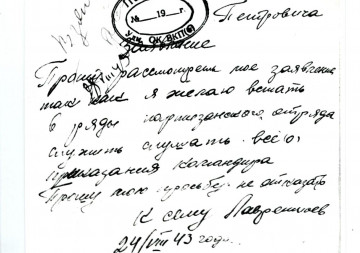 Петровича
№ 19 г.
ОК ВКП(б)
Заявление
Прошу рассмотреть мое заявление
так как я желаю встать
в ряды партизанского отряда
служить слушать всею
приказания командира
Прошу мою прозьбу не отказать
К сему Лаврентиев
24/VIII 43 года.